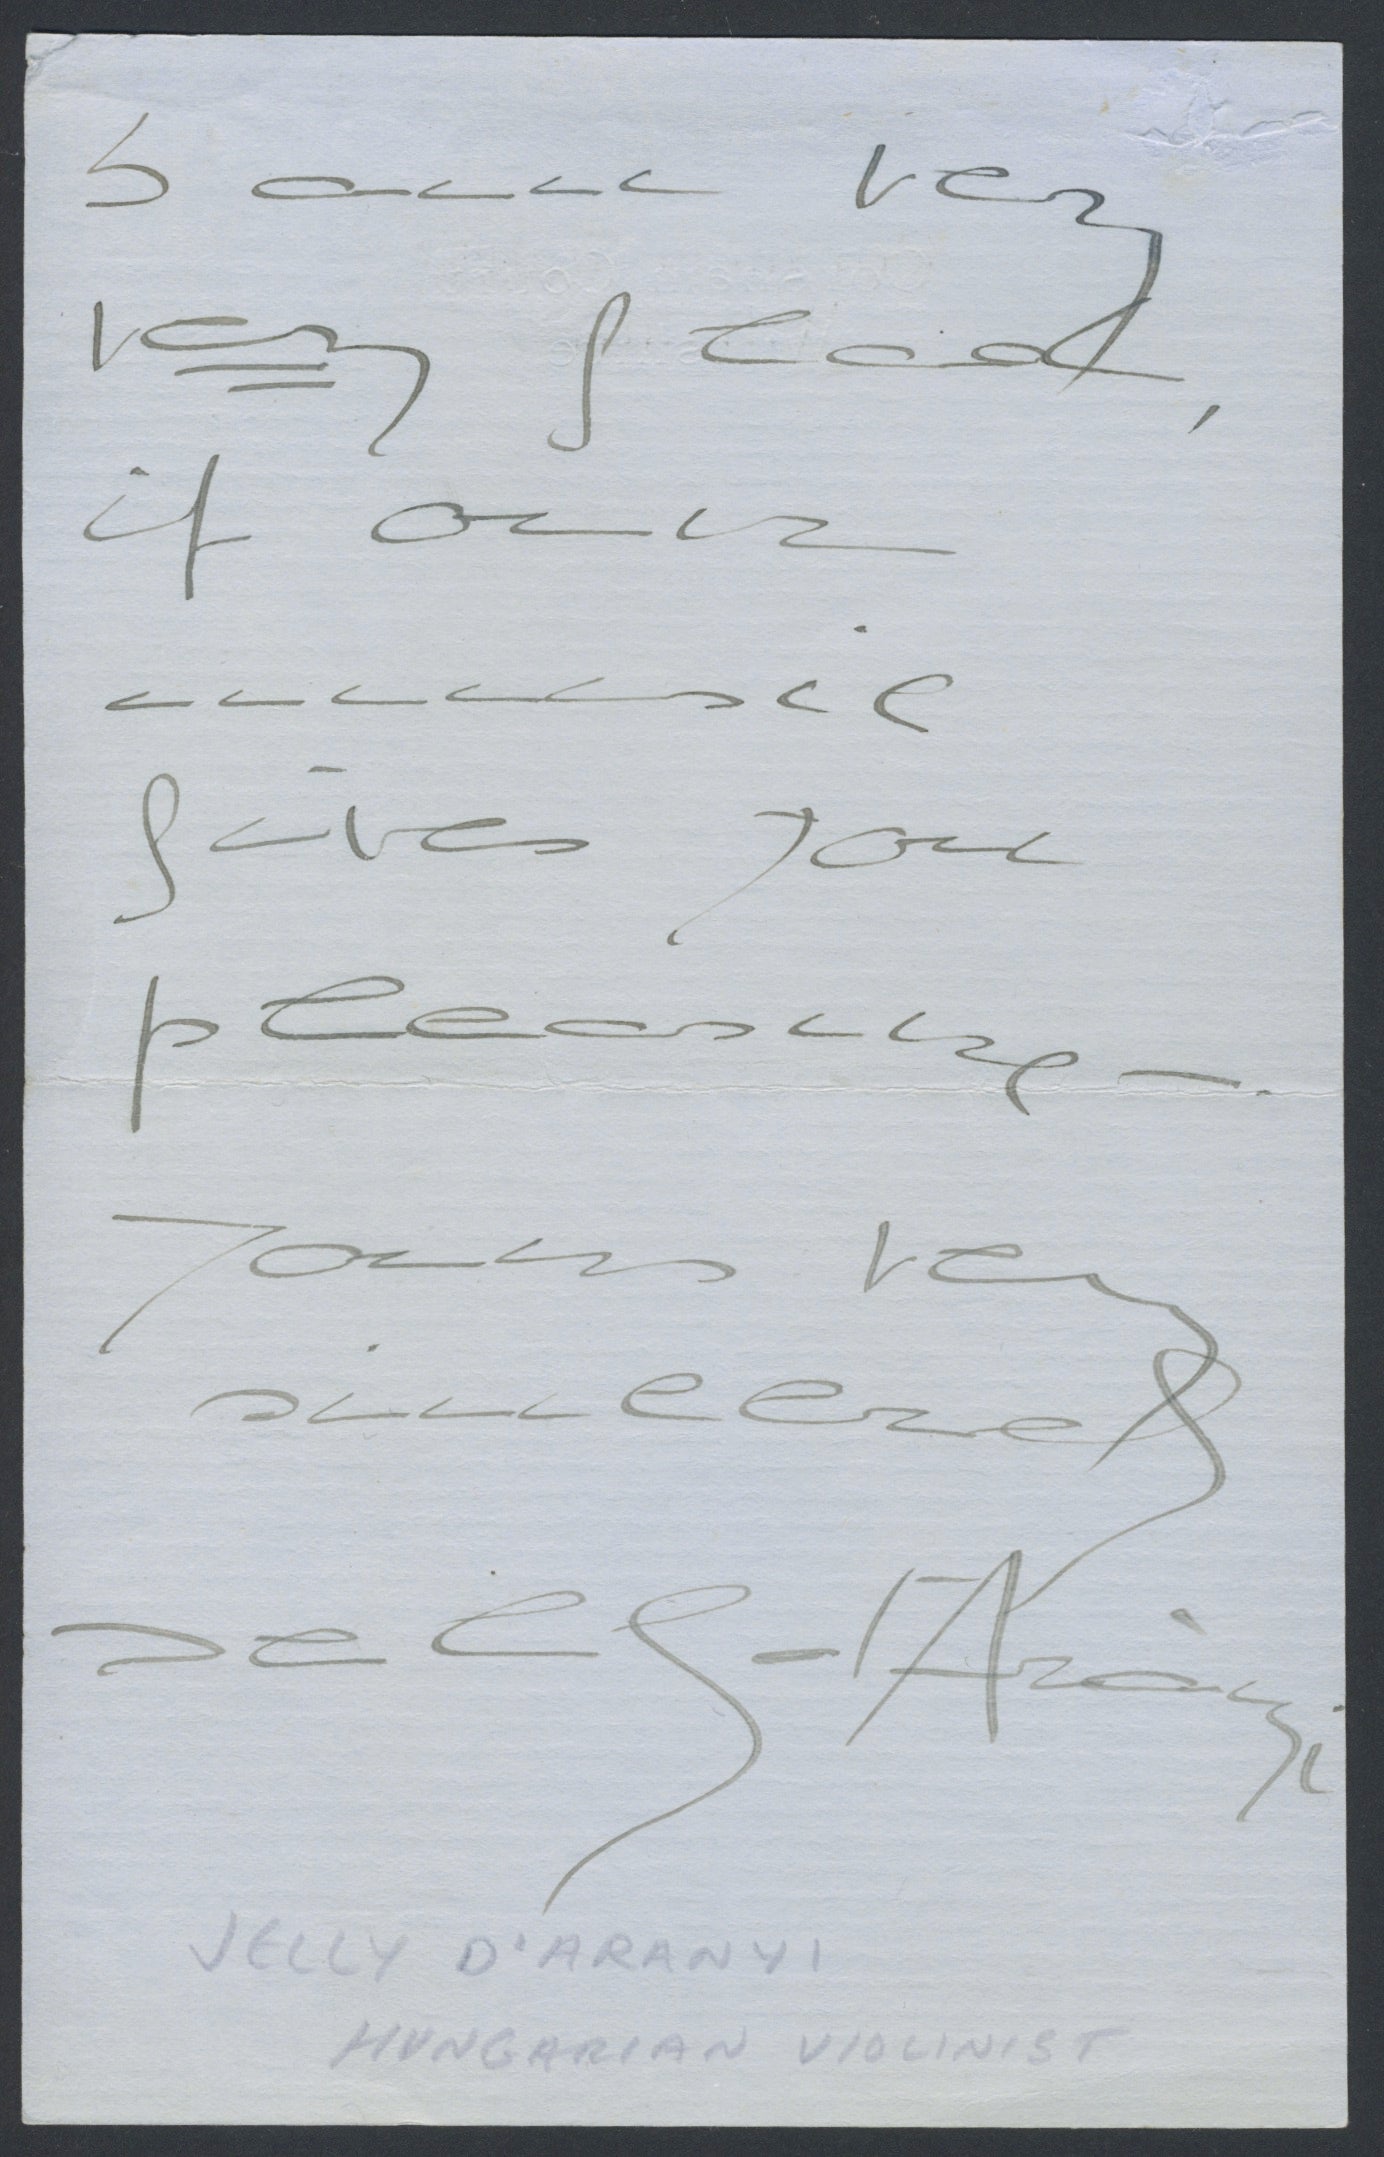 I am very
very glad,
if our
music
gives you
pleasure –.
Yours very
sincerely
Jelly d'Arányi
JELLY D'ARANYI
HUNGARIAN VIOLINIST